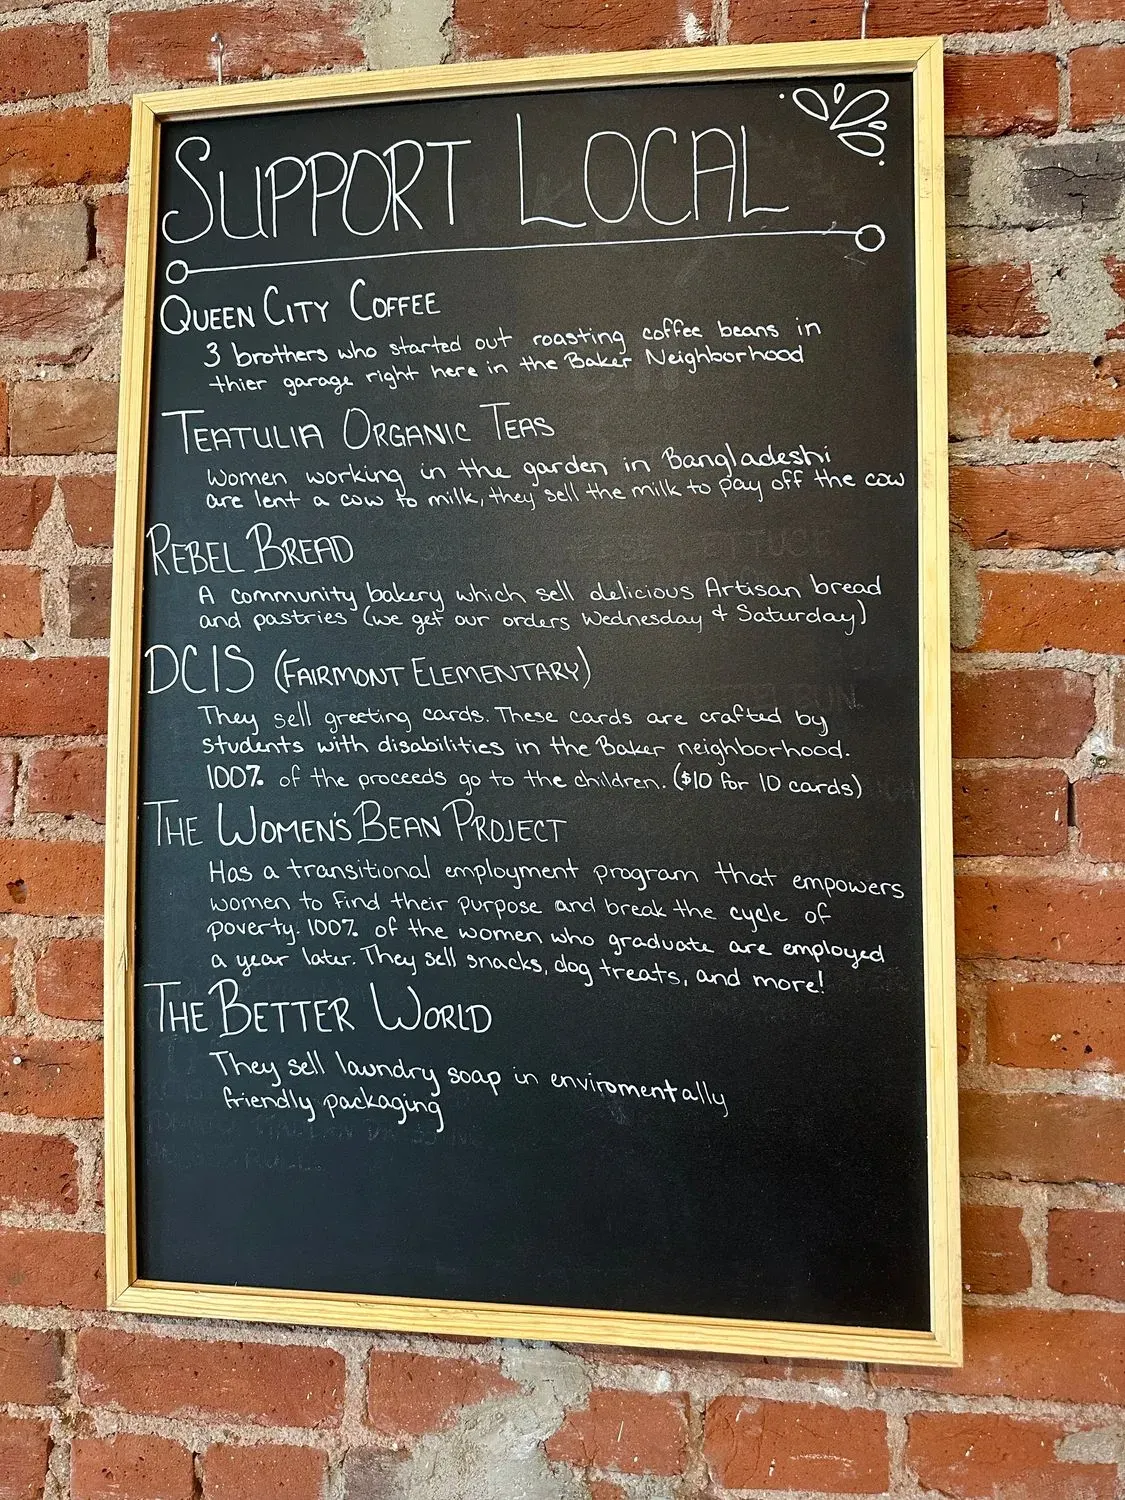 SUPPORT LOCAL
QUEEN CITY COFFEE
3 brothers who started out roasting coffee beans in
thier garage right here in the Baker Neighborhood
TEATULIA ORGANIC TEAS
Women working in the garden in Bangladeshi
are lent a cow to milk, they sell the milk to pay off the cow
REBEL BREAD
A community bakery which sell delicious Artisan bread
and pastries (we get our orders Wednesday & Saturday)
DCIS (FAIRMONT ELEMENTARY)
They sell greeting cards. These cards are crafted by
students with disabilities in the Baker neighborhood.
100% of the proceeds go to the children. ($10 for 10 cards)
THE WOMEN'S BEAN PROJECT
Has a transitional employment program that empowers
women to find their purpose and break the cycle of
poverty. 100% of the women who graduate are employed
a year later. They sell snacks, dog treats, and more!
THE BETTER WORLD
They sell laundry soap in enviromentally
friendly packaging